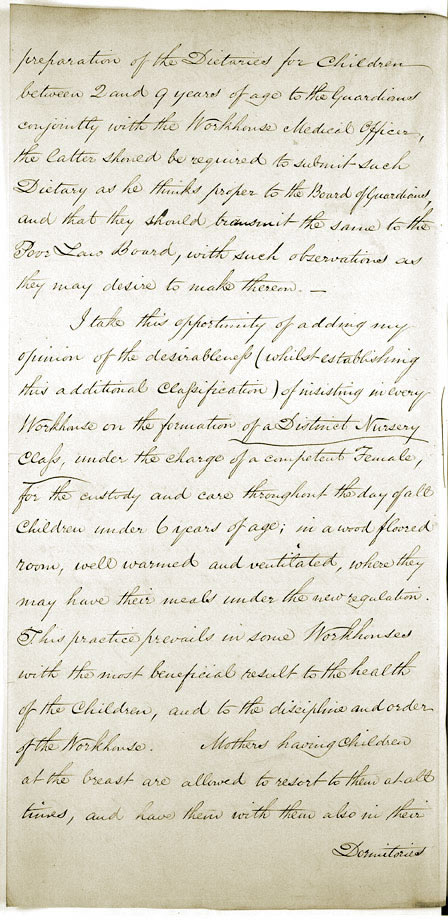 preparation of the Dietaries for Children
between 2 and 9 years of age to the Guardians
conjointly with the Workhouse Medical Officer,
the latter should be required to submit such
Dietary as he thinks proper to the Board of Guardians,
and that they should transmit the same to the
Poor Law Board, with such observations as
they may desire to make thereon. —
I take this opportunity of adding my
opinion of the desirableneſs (whilst establishing
this additional Claſsification) of insisting in every
Workhouse on the formation of a Distinct Nursery
Claſs, under the charge of a competent Female,
for the custody and care throughout the day of all
Children under 6 years of age; in a wood floored
room, well warmed and ventilated, where they
may have their meals under the new regulation.
This practice prevails in some Workhouses
with the most beneficial result to the health
of the Children, and to the discipline and order
of the Workhouse. Mothers having Children
at the breast are allowed to resort to them at all
times, and have them with them also in their
Dormitories